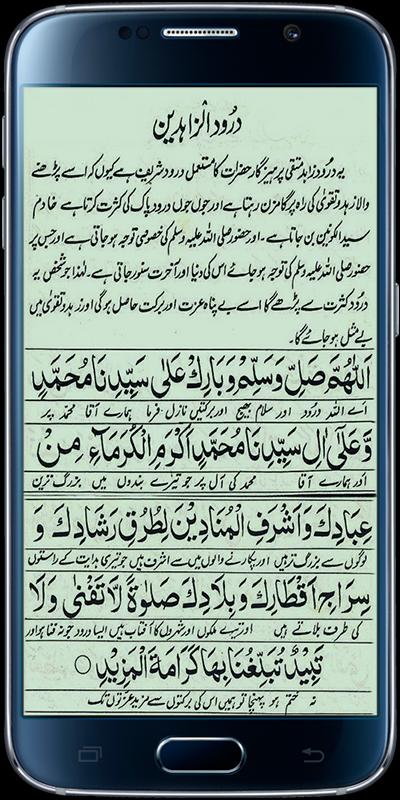 درُود الزاہدین
یہ درُود زاہد متقی پرہیزگار حضرات کا مستعمل درود شریف ہے کیوں کہ اسے پڑھنے
والا زہد و تقویٰ کی راہ پر گامزن رہتا ہے اور جوں جوں درود پاک کی کثرت کرتا ہے خادم
سید الکونین بن جاتا ہے۔ اور حضور صلی اللہ علیہ وسلم کی خصوصی توجہ ہو جاتی ہے اور جس پر
حضور صلی اللہ علیہ وسلم کی توجہ ہو جائے اس کی دنیا اور آخرت سنور جاتی ہے۔ لہٰذا جو شخص یہ
درود کثرت سے پڑھے گا اسے بے پناہ عزت اور برکت حاصل ہوگی اور زہد و تقویٰ میں
بے مثل ہو جائے گا۔
اَللّٰهُمَّ صَلِّ وَسَلِّمْ وَبَارِكْ عَلٰى سَيِّدِنَا مُحَمَّدٍ
اے اللہ درُود اور سلام بھیج اور برکتیں نازل فرما ہمارے آقا محمد پر
وَّعَلٰٓى اٰلِ سَيِّدِنَا مُحَمَّدٍ اَكْرَمِ الْكُرَمَآءِ مِنْ
اور ہمارے آقا محمد کی آل پر جو تیرے بندوں میں بزرگ ترین
عِبَادِكَ وَاَشْرَفِ الْمُنَادِيْنَ لِطُرُقِ رَشَادِكَ وَ
لوگوں سے بزرگ ترہیں اور پکارنے والوں میں سے اشرف ہیں جو تیری ہدایت کے راستوں
سِرَاجِ اَقْطَارِكَ وَبِلَادِكَ صَلٰوةً لَّا تَفْنٰى وَلَا
کی طرف بلاتے ہیں اور تیرے ملکوں اور شہروں کا آفتاب ہیں ایسا درود جو نہ فنا ہو اور
تَبِيْدُ تُبَلِّغُنَا بِهَا كَرَامَةَ الْمَزِيْدِ ○
نہ ختم ہو پہنچا تو ہمیں اس کی برکتوں سے مزید عزتوں تک